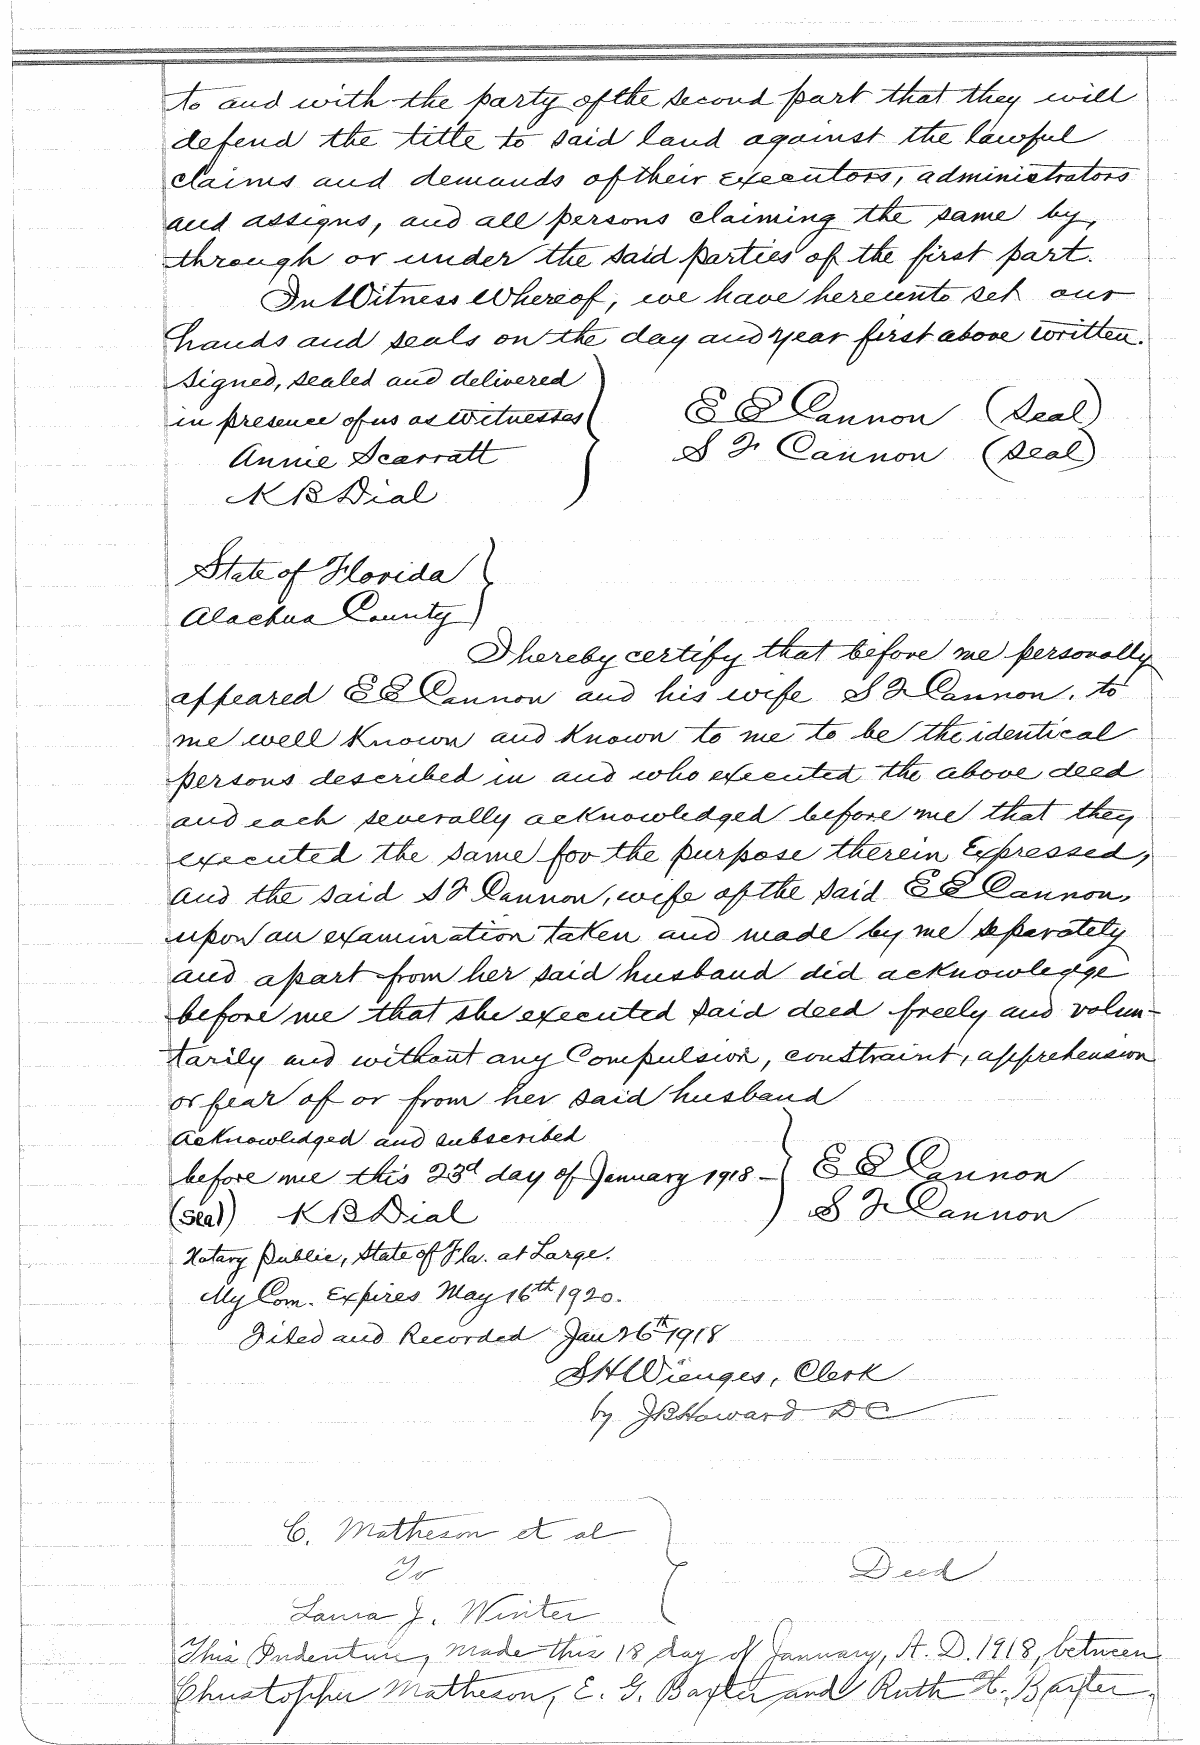 to and with the party of the second part that they will
defend the title to said land against the lawful
claims and demands of their executors, administrators
and assigns, and all persons claiming the same by,
through or under the said parties of the first part.
In Witness Whereof, we have hereunto set our
hands and seals on the day and year first above written.
Signed, sealed and delivered
in presence of us as witnesses
E E Cannon (Seal)
Annie Scarratt
S F Cannon (Seal)
K B Dial
State of Florida
Alachua County
I hereby certify that before me personally
appeared E E Cannon and his wife S F Cannon, to
me well known and known to me to be the identical
persons described in and who executed the above deed
and each severally acknowledged before me that they
executed the same for the purpose therein Expressed,
and the said S F Cannon, wife of the said E E Cannon,
upon an examination taken and made by me separately
and apart from her said husband did acknowledge
before me that she executed said deed freely and volun-
tarily and without any Compulsion, constraint, apprehension
or fear of or from her said husband
Acknowledged and subscribed
before me this 23d day of January 1918 - E E Cannon
(Seal) K B Dial S F Cannon
Notary Public, State of Fla. at Large.
My Com. Expires May 16th 1920.
Filed and Recorded Jan 26th 1918
S H Wienges, Clerk
by J B Howard DC
C. Matheson et al
To Deed
Laura J. Winter
This Indenture, made this 18 day of January, A. D. 1918, between
Christopher Matheson, E. G. Baxter and Ruth H. Baxter,